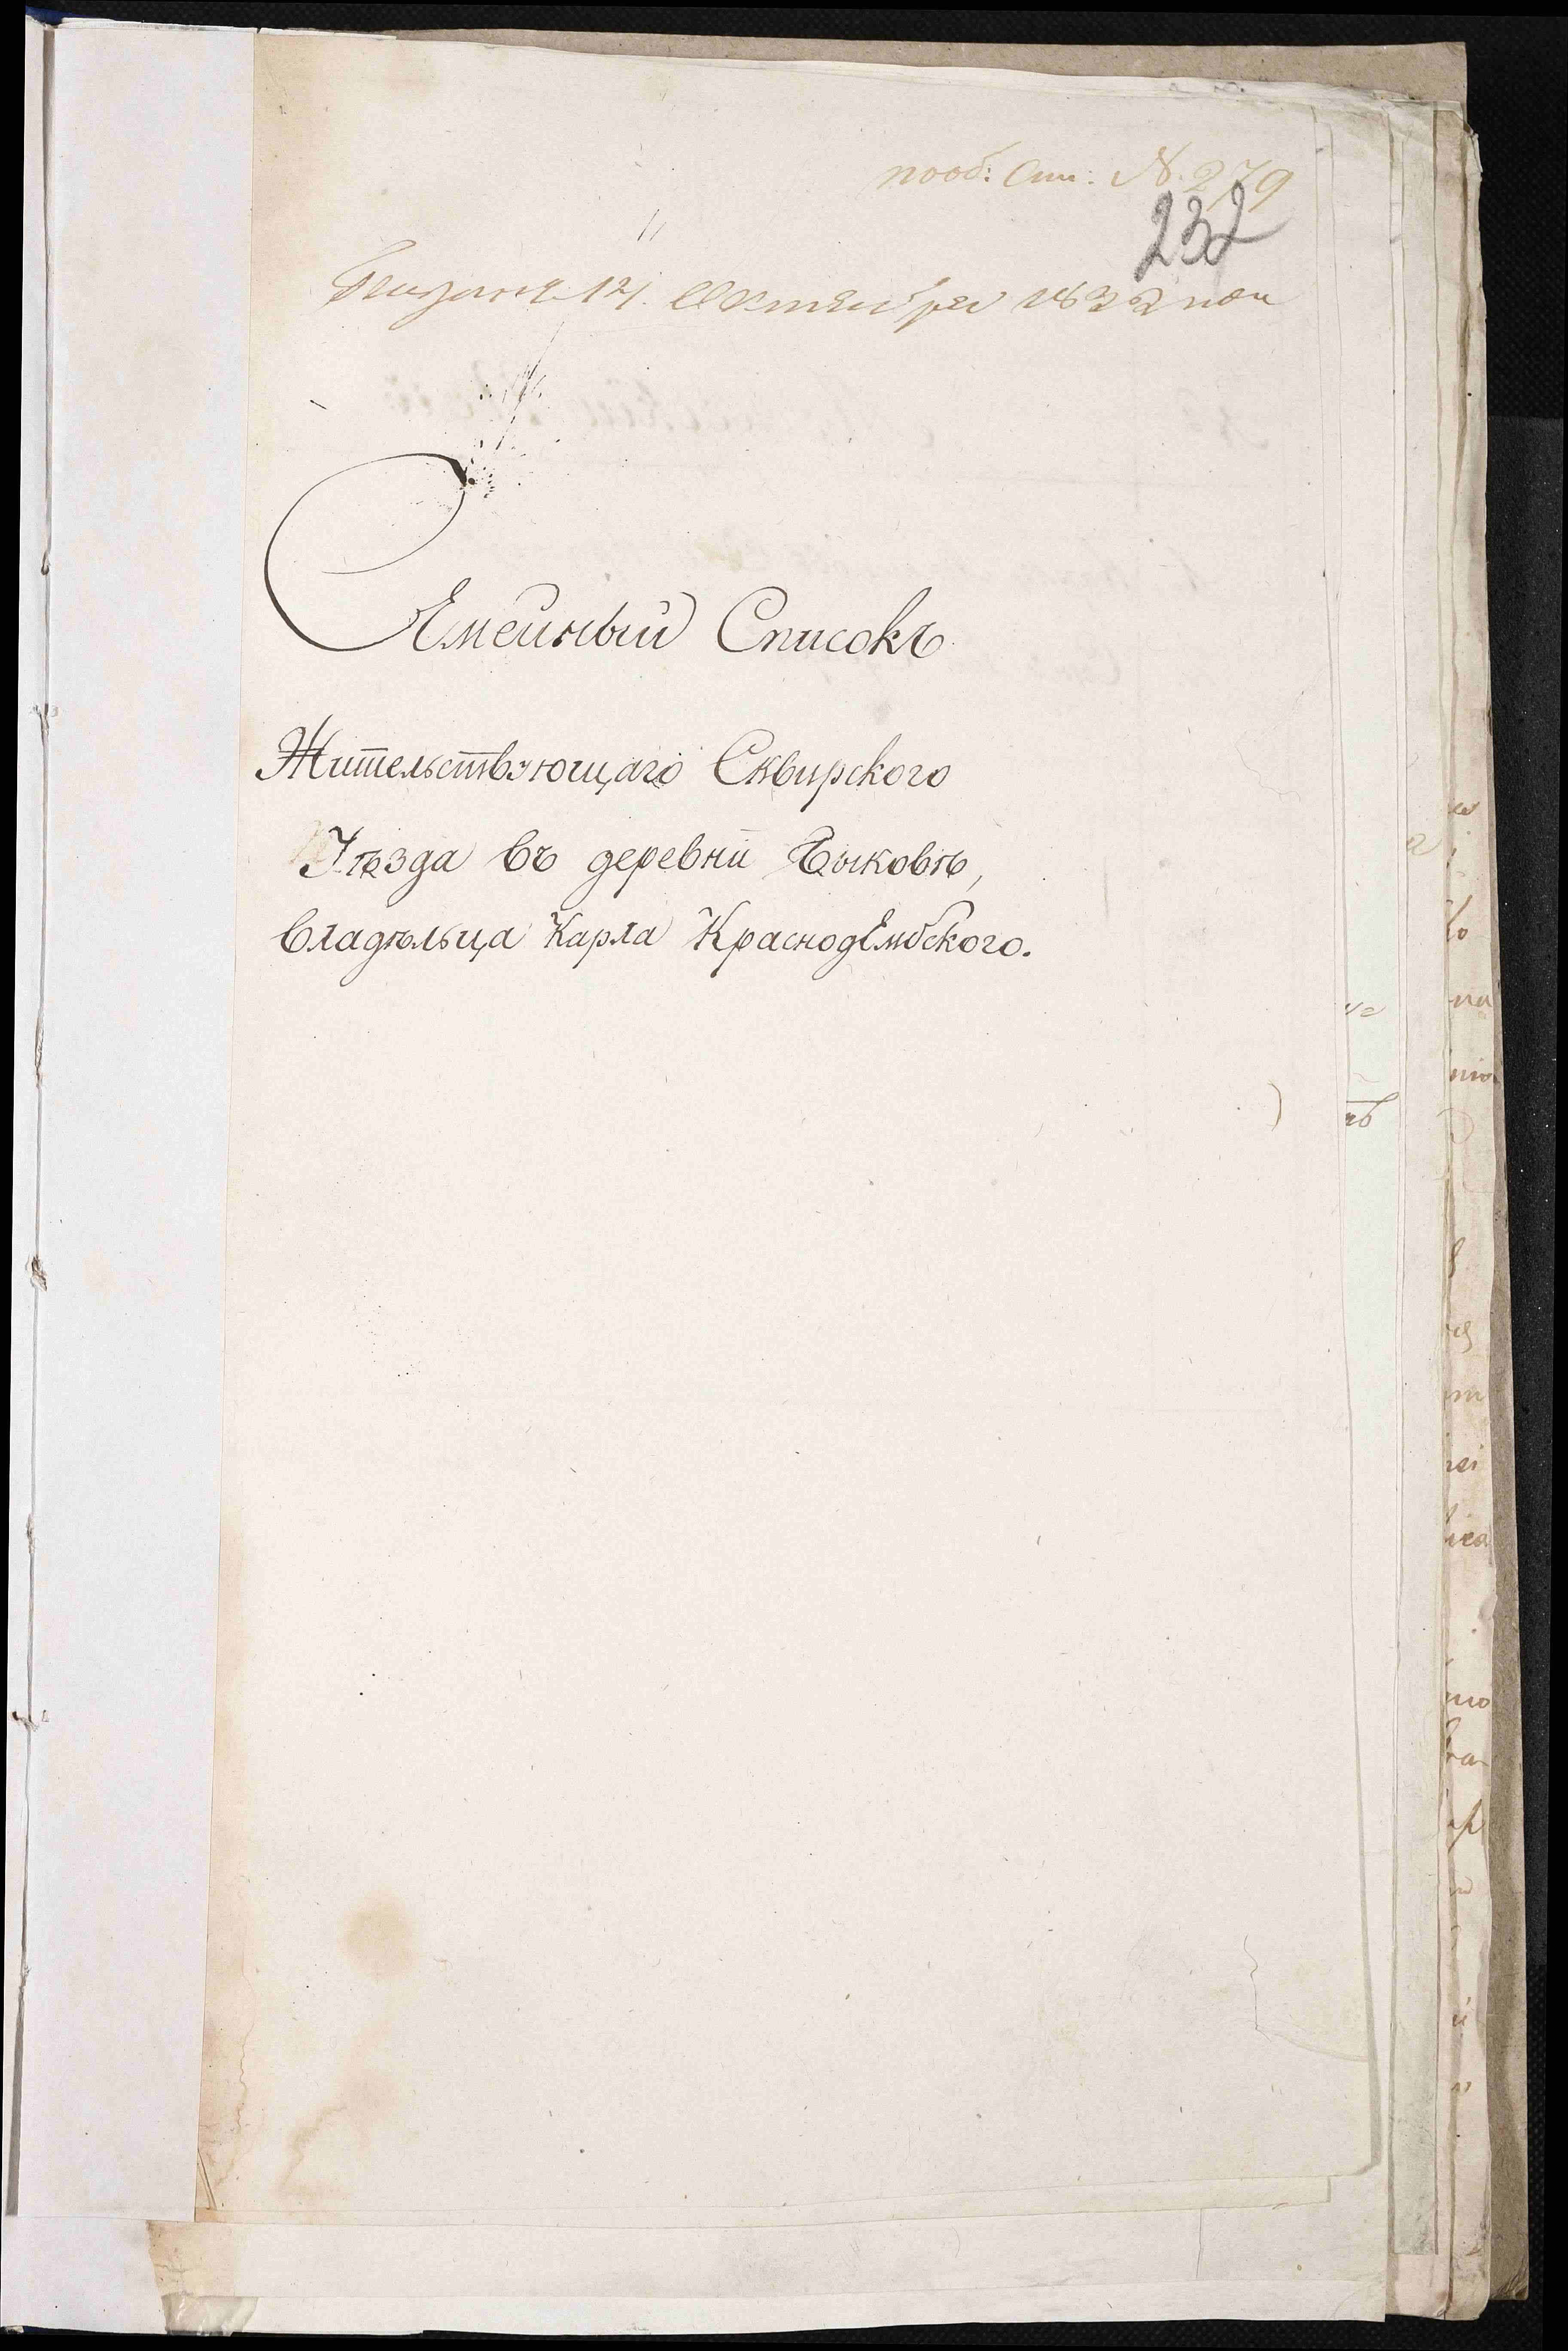 пооб: Оп: №. 279
232
Подано 14. Октября 1832 года
Семейный Списокъ
Жительствующаго Сквирского
Уѣзда въ деревни Быковѣ,
Владѣльца Карла Краснодембского.